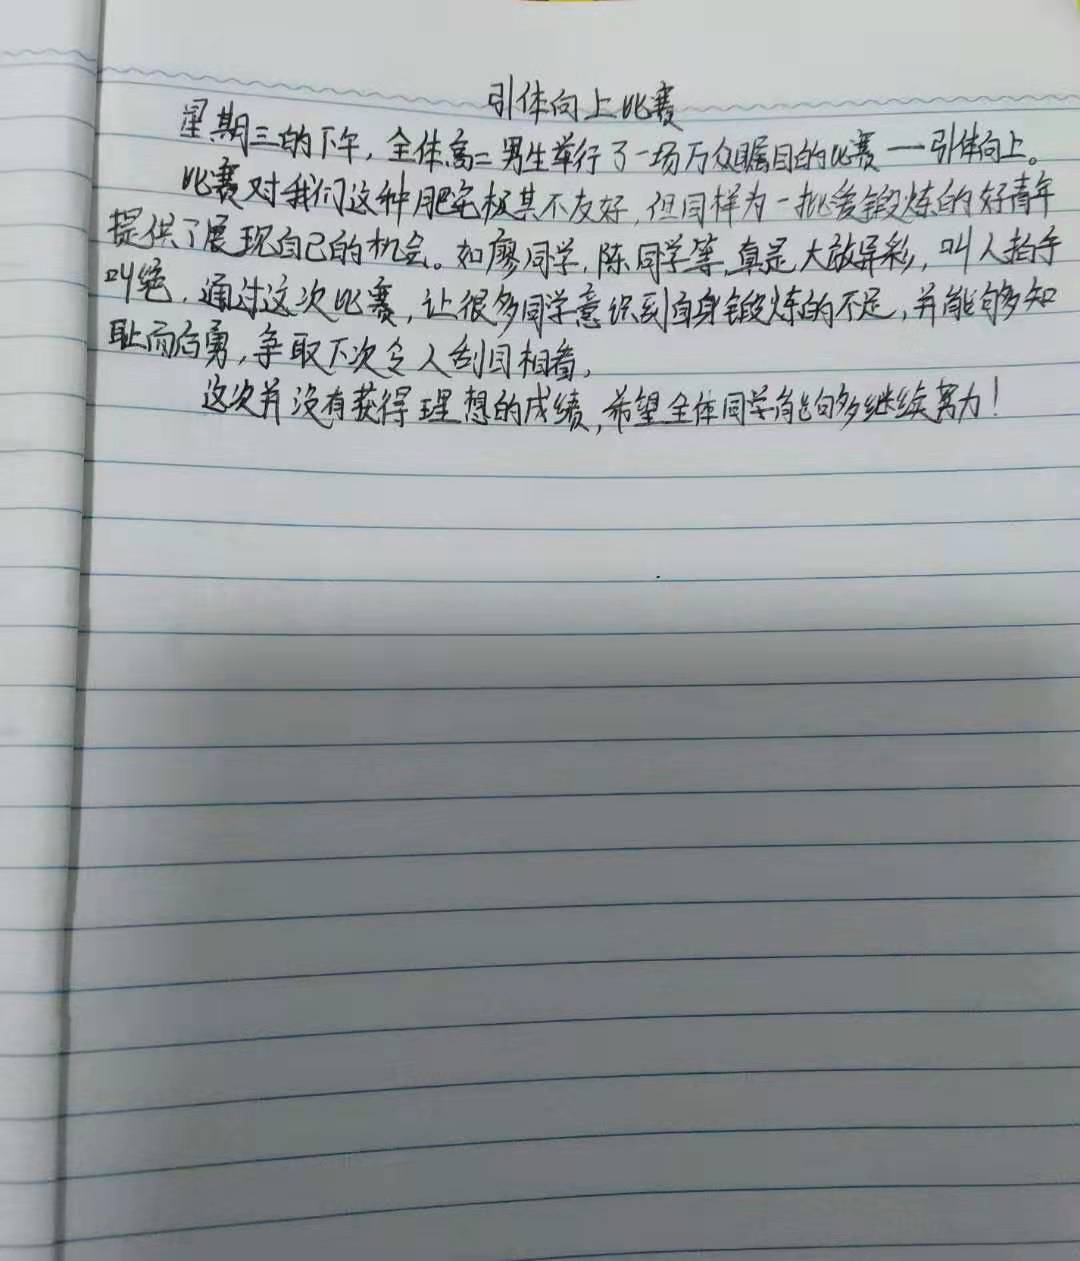 引体向上比赛
星期三的下午，全体高二男生举行了一场万众瞩目的比赛一引体向上。
比赛对我们这种肥宅极其不友好，但同样为一批爱锻炼的好青年
提供了展现自己的机会。如廖同学，陈同学等，真是大放异彩，叫人拍手
叫绝，通过这次比赛，让很多同学意识到自身锻炼的不足，并能够知
耻而后勇，争取下次令人刮目相看，
这次并没有获得理想的成绩，希望全体同学能够继续努力！